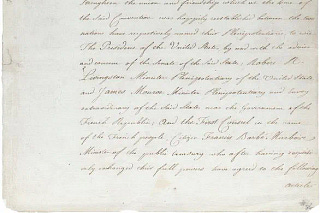 Strengthen the union and friendship which at the time of
the Said Convention was happily reestablished between the two
nations have respectively named their Plenipotentiaries to wit
The President of the United States, by and with the advice
and consent of the Senate of the Said States; Robert R.
Livingston Minister Plenipotentiary of the United States
and James Monroe Minister Plenipotentiary and Envoy
extraordinary of the Said States near the Government of the
French Republic; And the First Consul in the name
of the French people, Citizen Francis Barbé Marbois
Minister of the public treasury who after having respect-
ively exchanged their full powers have agreed to the following
Articles